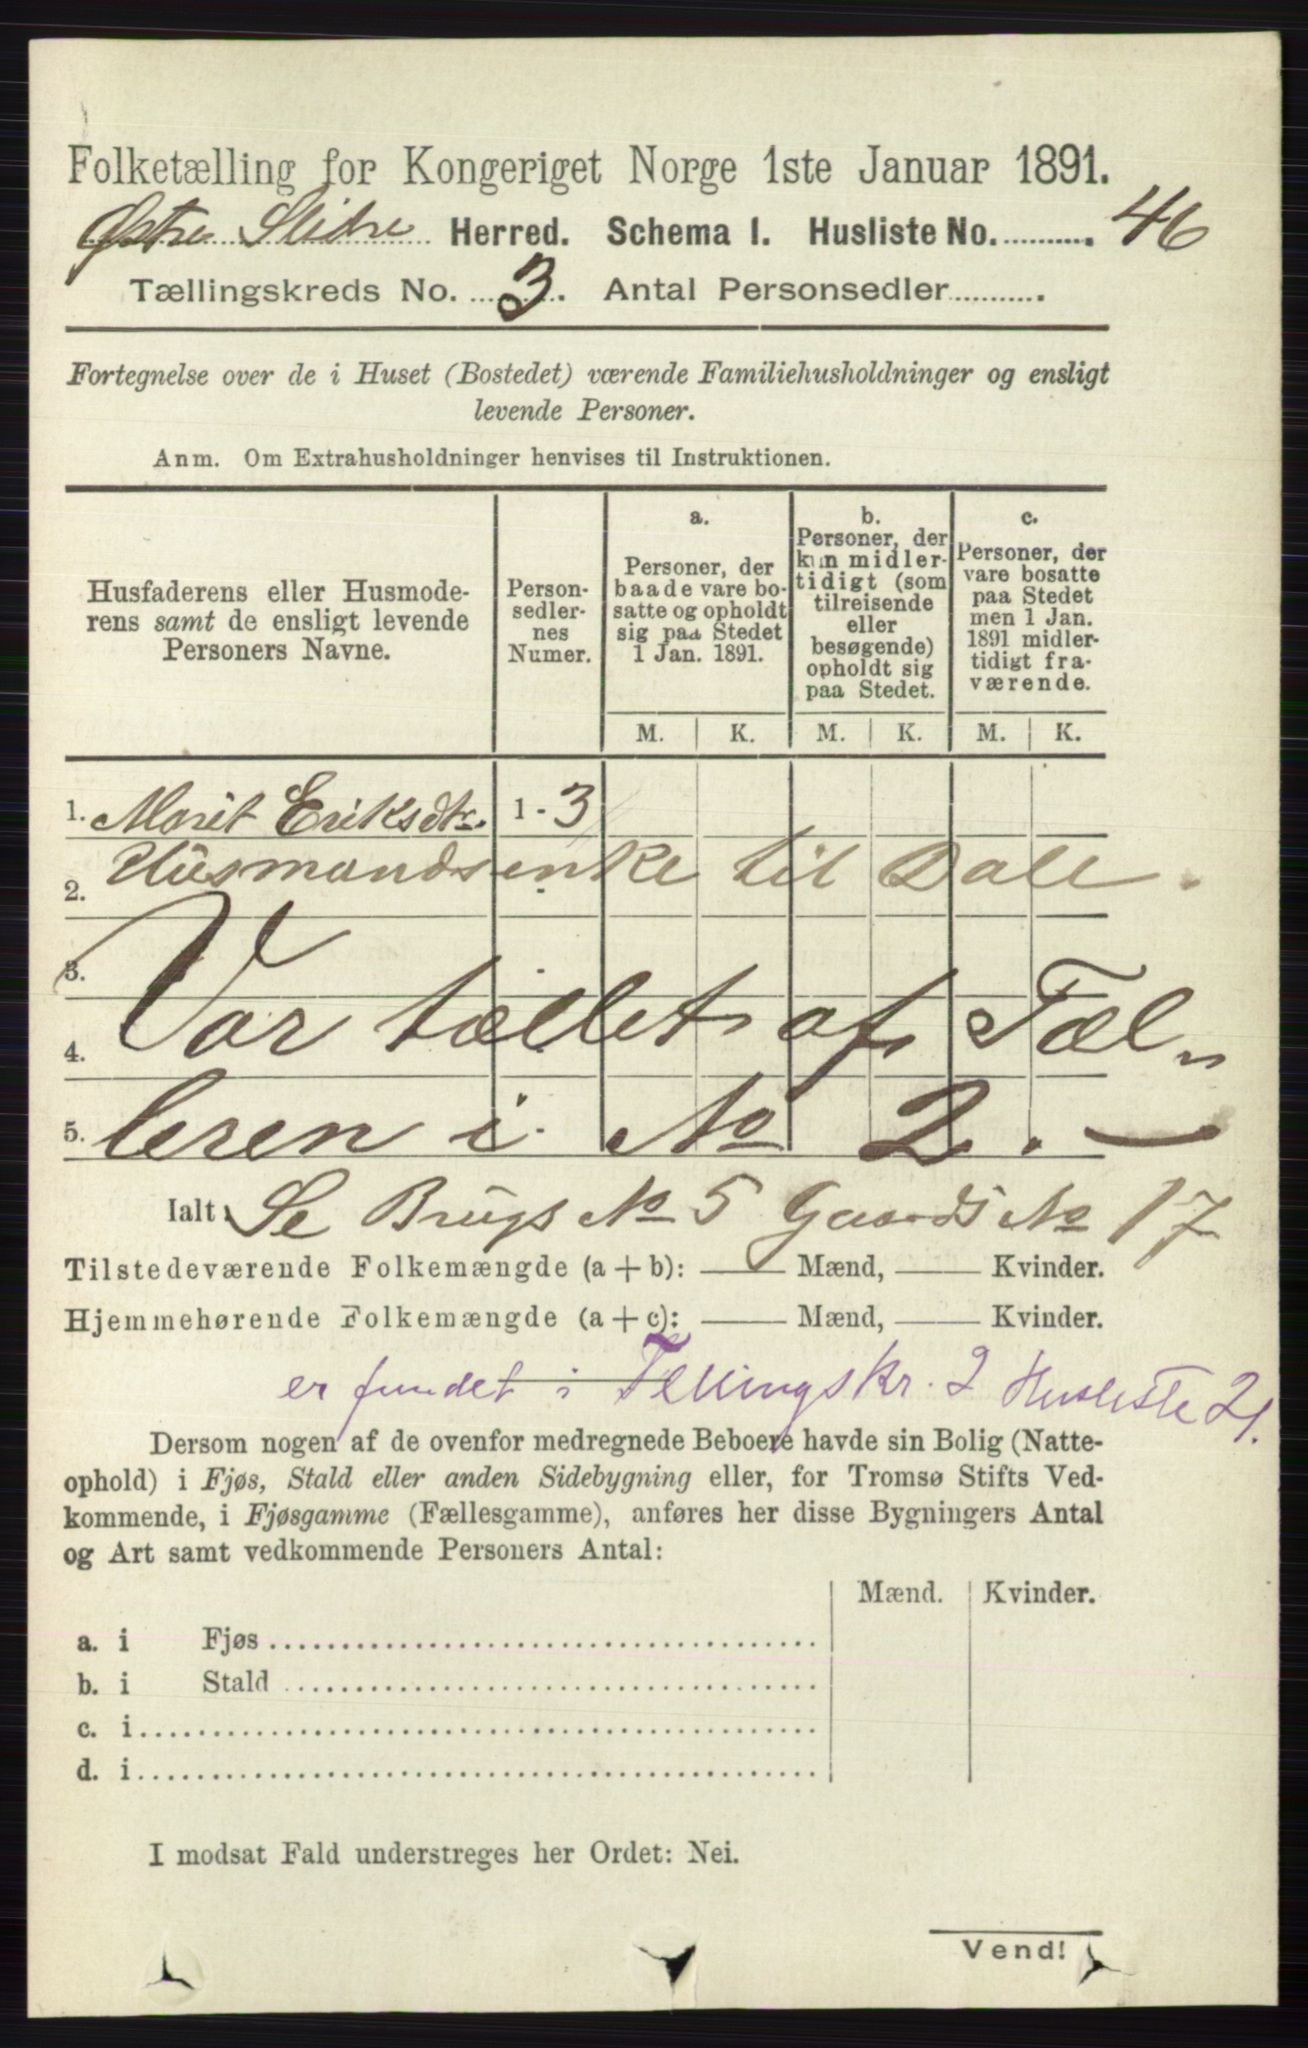 Folketælling for Kongeriget Norge 1ste Januar 1891.
Østre Slidre Herred. Schema I. Husliste No. 46
Tællingskreds No. 3. Antal Personsedler
Fortegnelse over de i Huset (Bostedet) værende Familiehusholdninger og ensligt
levende Personer.
Anm. Om Extrahusholdninger henvises til Instruktionen.
Husfaderens eller Husmode-
rens samt de ensligt levende
Personers Navne.
Person-
sedler-
nes
Numer.
a.
Personer, der
baade vare bo-
satte og opholdt
sig paa Stedet
1 Jan. 1891.
b.
Personer, der
kun midler-
tidigt (som
tilreisende
eller
besøgende)
opholdt sig
paa Stedet.
c.
Personer, der
vare bosatte
paa Stedet
men 1 Jan.
1891 midler-
tidigt fra-
værende.
M. K. M. K. M. K.
1. Marit Eriksdtr. 1 - 3
2. Husmandsenke til Dale.
3.
4. Var tællet af Tæl-
5. leren i No 2. —
Ialt: Se Brugs No 5 Gaards No 17
Tilstedeværende Folkemængde (a + b): —— Mænd, —— Kvinder.
Hjemmehørende Folkemængde (a + c): —— Mænd, —— Kvinder.
er fundet i Tellingskr. 2 Husliste 21.
Dersom nogen af de ovenfor medregnede Beboere havde sin Bolig (Natte-
ophold) i Fjøs, Stald eller anden Sidebygning eller, for Tromsø Stifts Ved-
kommende, i Fjøsgamme (Fællesgamme), anføres her disse Bygningers Antal
og Art samt vedkommende Personers Antal:
Mænd. Kvinder.
a. i Fjøs
b. i Stald
c. i
d. i
I modsat Fald understreges her Ordet: Nei.
Vend!